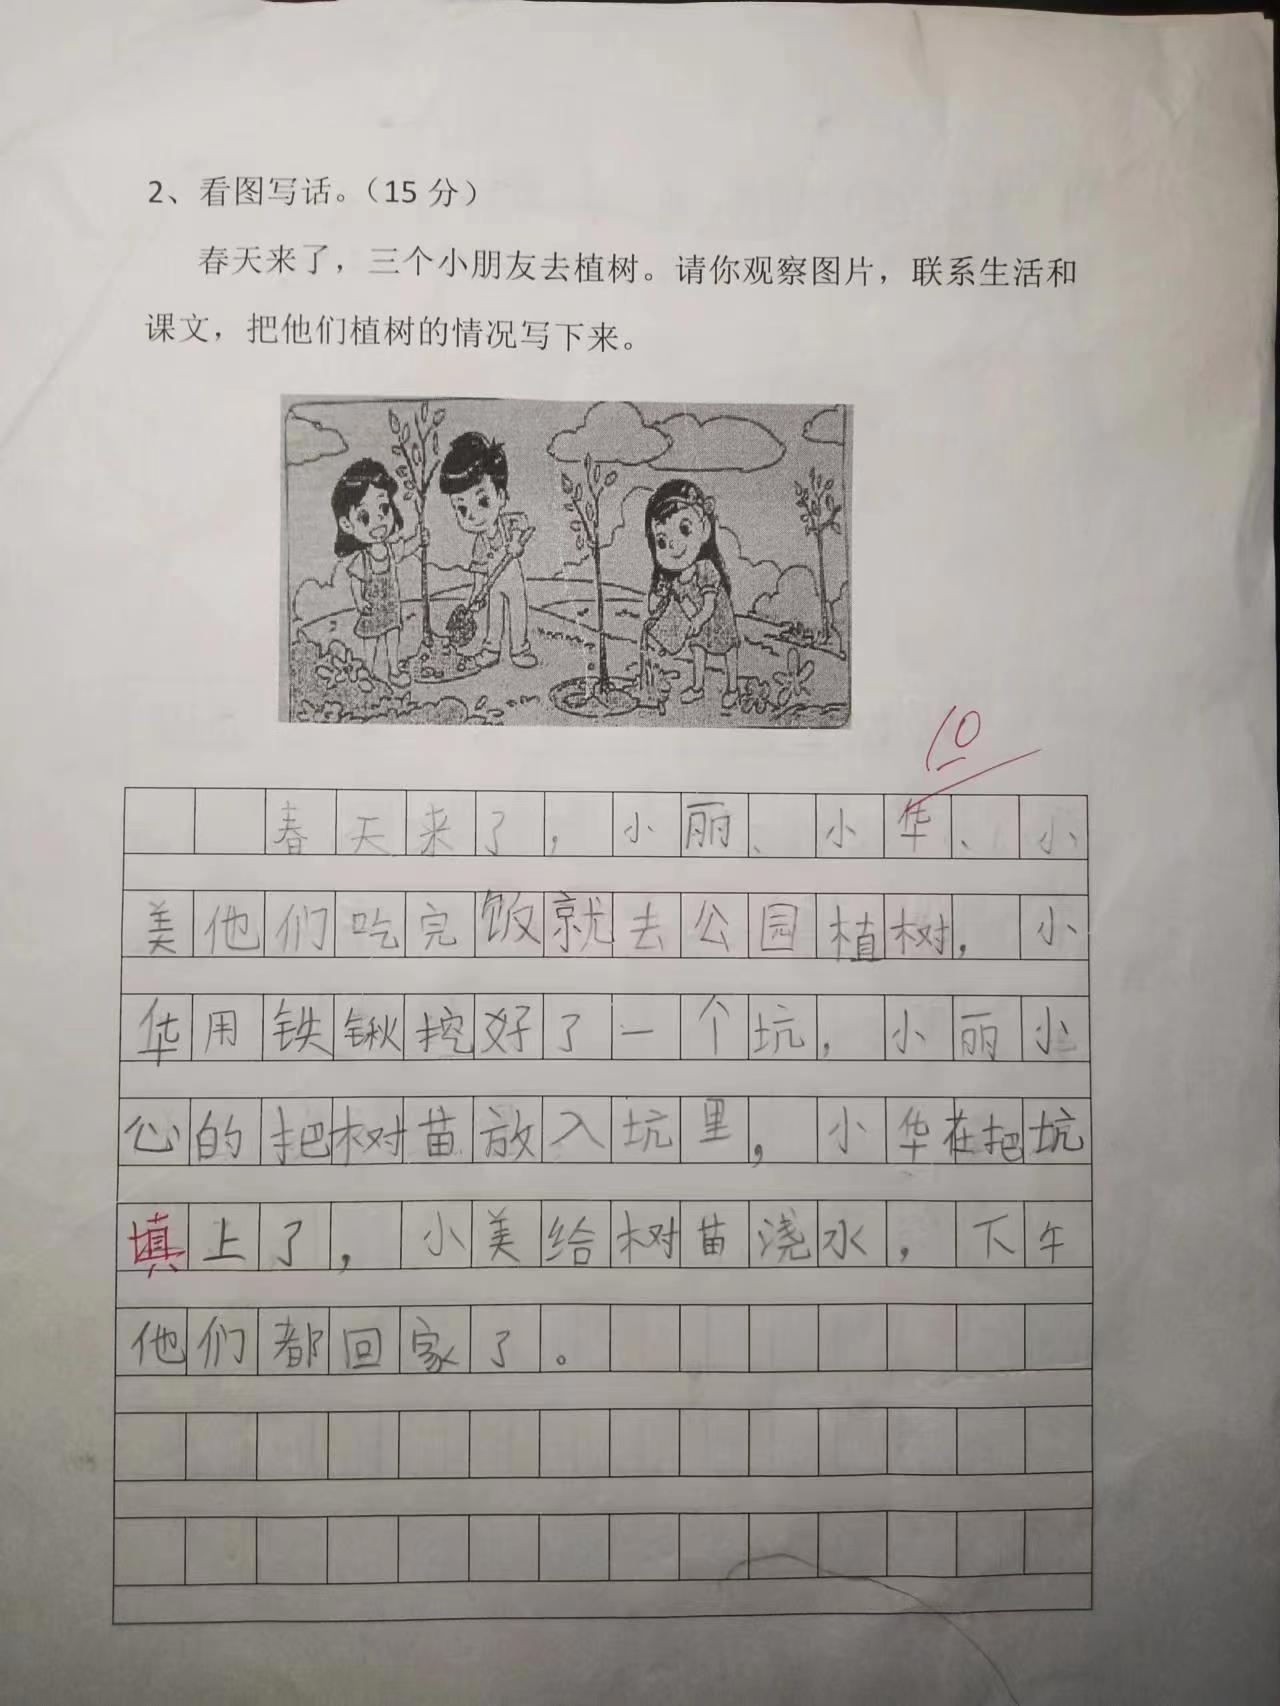 2、看图写话。（15 分）
春天来了，三个小朋友去植树。请你观察图片，联系生活和
课文，把他们植树的情况写下来。
10
春天来了，小丽、小华、小
美他们吃完饭就去公园植树，小
华用铁锹挖好了一个坑，小丽小
心的把树苗放入坑里，小华在把坑
填上了，小美给树苗浇水，下午
他们都回家了。